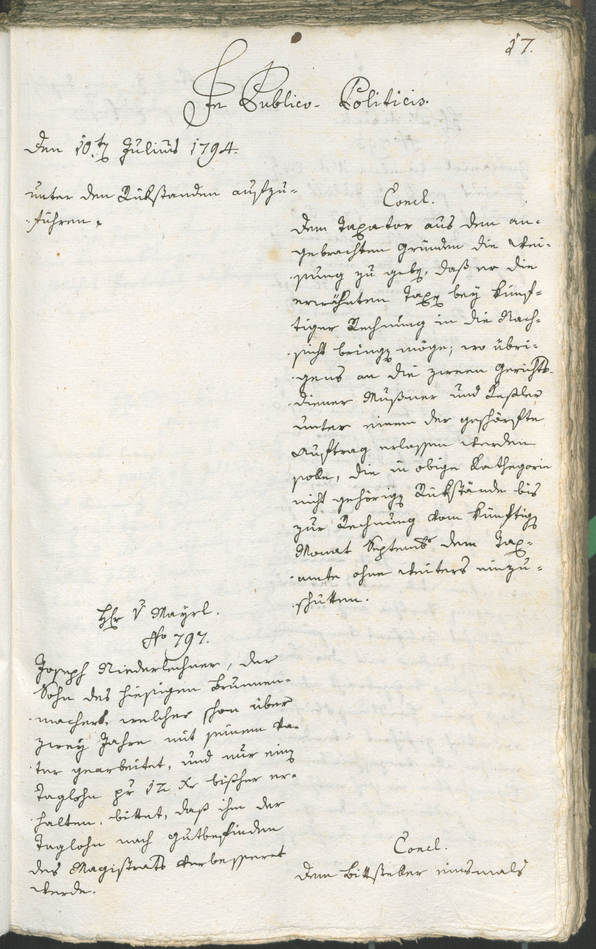 17.
In Publico-Politicis.
Den 10.t Julius 1794.
unter den Rükständen aufzu-
führen.
Concl.
Dem Taxator aus dem an-
gebrachten Gründen die Wei-
sung zu geben, daß er die
erwähnten Taxen bey künf-
tiger Rechnung in die Nach-
sicht bringen möge; wo übri-
gens an die zween Gerichts-
diener Mußner und Keßler
unter einem der geschärfte
Auftrag erlassen werden
solle, die in obige Kathegorie
nicht gehörigen Rükstände bis
zur Rechnung vom künftigen
Monat Septemb. dem Tax-
amte ohne weiters einzu-
schütten.
Hr. v. Mayrl.
No 797.
Joseph Niederlechner, der
Sohn des hiesigen Brunnen-
machers, welcher schon über
zwey Jahre mit seinem Va-
ter gearbeitet, und nur einen
Taglohn pr 12 Xr bißher er-
halten, bittet, daß ihm der
Taglohn nach Gutbefinden
des Magistrats verbesseret
werde.
Concl.
Dem Bittsteller einsmals